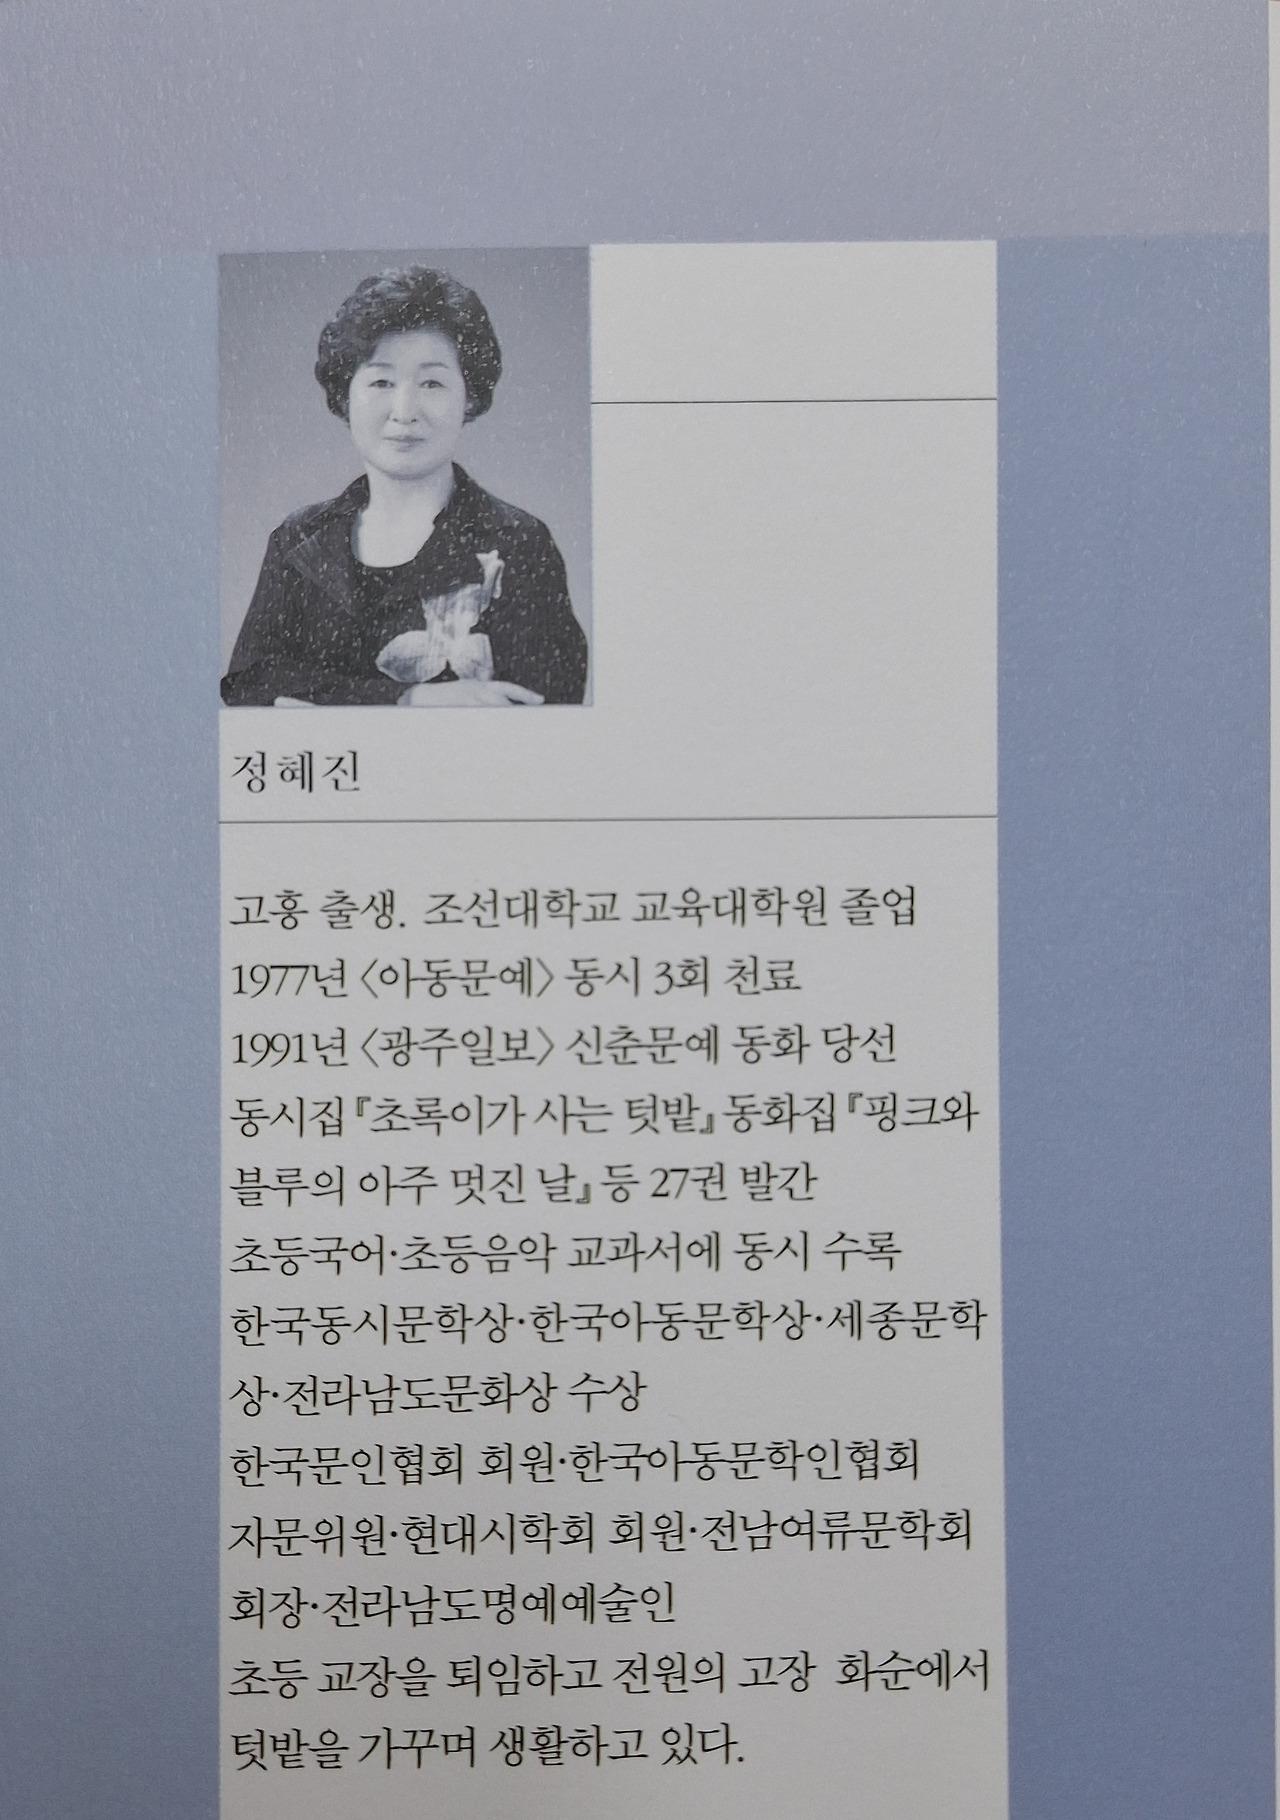 정혜진
고흥 출생. 조선대학교 교육대학원 졸업
1977년 〈아동문예〉 동시 3회 천료
1991년 〈광주일보〉 신춘문예 동화 당선
동시집 『초록이가 사는 텃밭』 동화집 『핑크와
블루의 아주 멋진 날』 등 27권 발간
초등국어·초등음악 교과서에 동시 수록
한국동시문학상·한국아동문학상·세종문학
상·전라남도문화상 수상
한국문인협회 회원·한국아동문학인협회
자문위원·현대시학회 회원·전남여류문학회
회장·전라남도명예예술인
초등 교장을 퇴임하고 전원의 고장 화순에서
텃밭을 가꾸며 생활하고 있다.